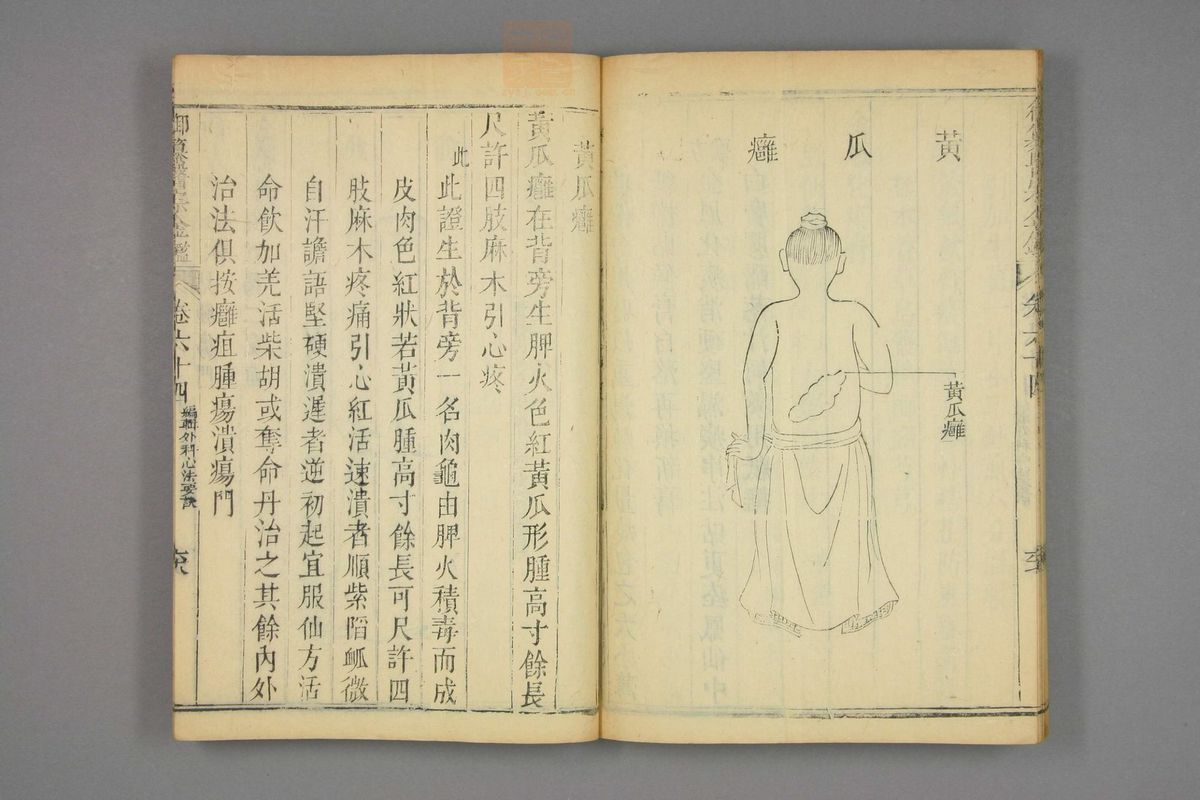 黃
瓜
癰
黃瓜癰
黃瓜癰
黃瓜癰在背旁生脾火色紅黃瓜形腫高寸餘長
尺許四肢麻木引心疼
註此證生於背旁一名肉龜由脾火積毒而成
皮肉色紅狀若黃瓜腫高寸餘長可尺許四
肢麻木疼痛引心紅活速潰者順紫陷衃微
自汗譫語堅硬潰遲者逆初起宜服仙方活
命飲加羌活柴胡或奪命丹治之其餘內外
治法俱按癰疽腫瘍潰瘍門
御纂醫宗金鑑
卷六十四
編輯外科心法要訣